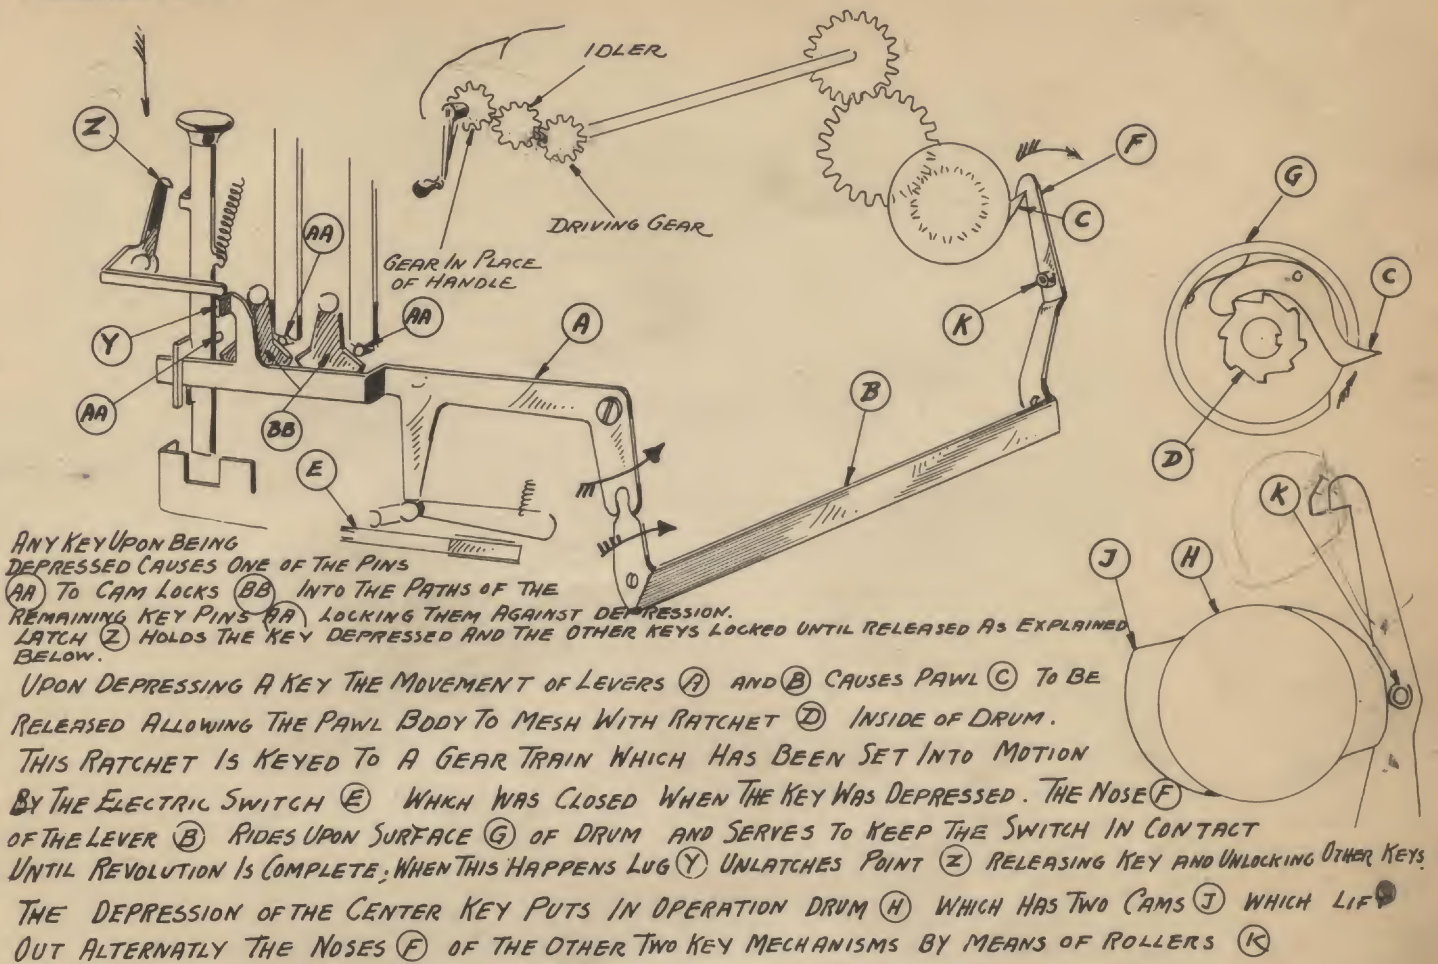 IDLER
Z
F
G
C
DRIVING GEAR
AA
GEAR IN PLACE
OF HANDLE
C
K
Y
AA
A
AA
BB
B
D
E
K
J
H
ANY KEY UPON BEING
DEPRESSED CAUSES ONE OF THE PINS
AA TO CAM LOCKS BB INTO THE PATHS OF THE
REMAINING KEY PINS AA LOCKING THEM AGAINST DEPRESSION.
LATCH Z HOLDS THE KEY DEPRESSED AND THE OTHER KEYS LOCKED UNTIL RELEASED AS EXPLAINED
BELOW.
UPON DEPRESSING A KEY THE MOVEMENT OF LEVERS A AND B CAUSES PAWL C TO BE
RELEASED ALLOWING THE PAWL BODY TO MESH WITH RATCHET D INSIDE OF DRUM.
THIS RATCHET IS KEYED TO A GEAR TRAIN WHICH HAS BEEN SET INTO MOTION
BY THE ELECTRIC SWITCH E WHICH WAS CLOSED WHEN THE KEY WAS DEPRESSED. THE NOSE F
OF THE LEVER B RIDES UPON SURFACE G OF DRUM AND SERVES TO KEEP THE SWITCH IN CONTACT
UNTIL REVOLUTION IS COMPLETE; WHEN THIS HAPPENS LUG Y UNLATCHES POINT Z RELEASING KEY AND UNLOCKING OTHER KEYS.
THE DEPRESSION OF THE CENTER KEY PUTS IN OPERATION DRUM H WHICH HAS TWO CAMS J WHICH LIFT
OUT ALTERNATLY THE NOSES F OF THE OTHER TWO KEY MECHANISMS BY MEANS OF ROLLERS K